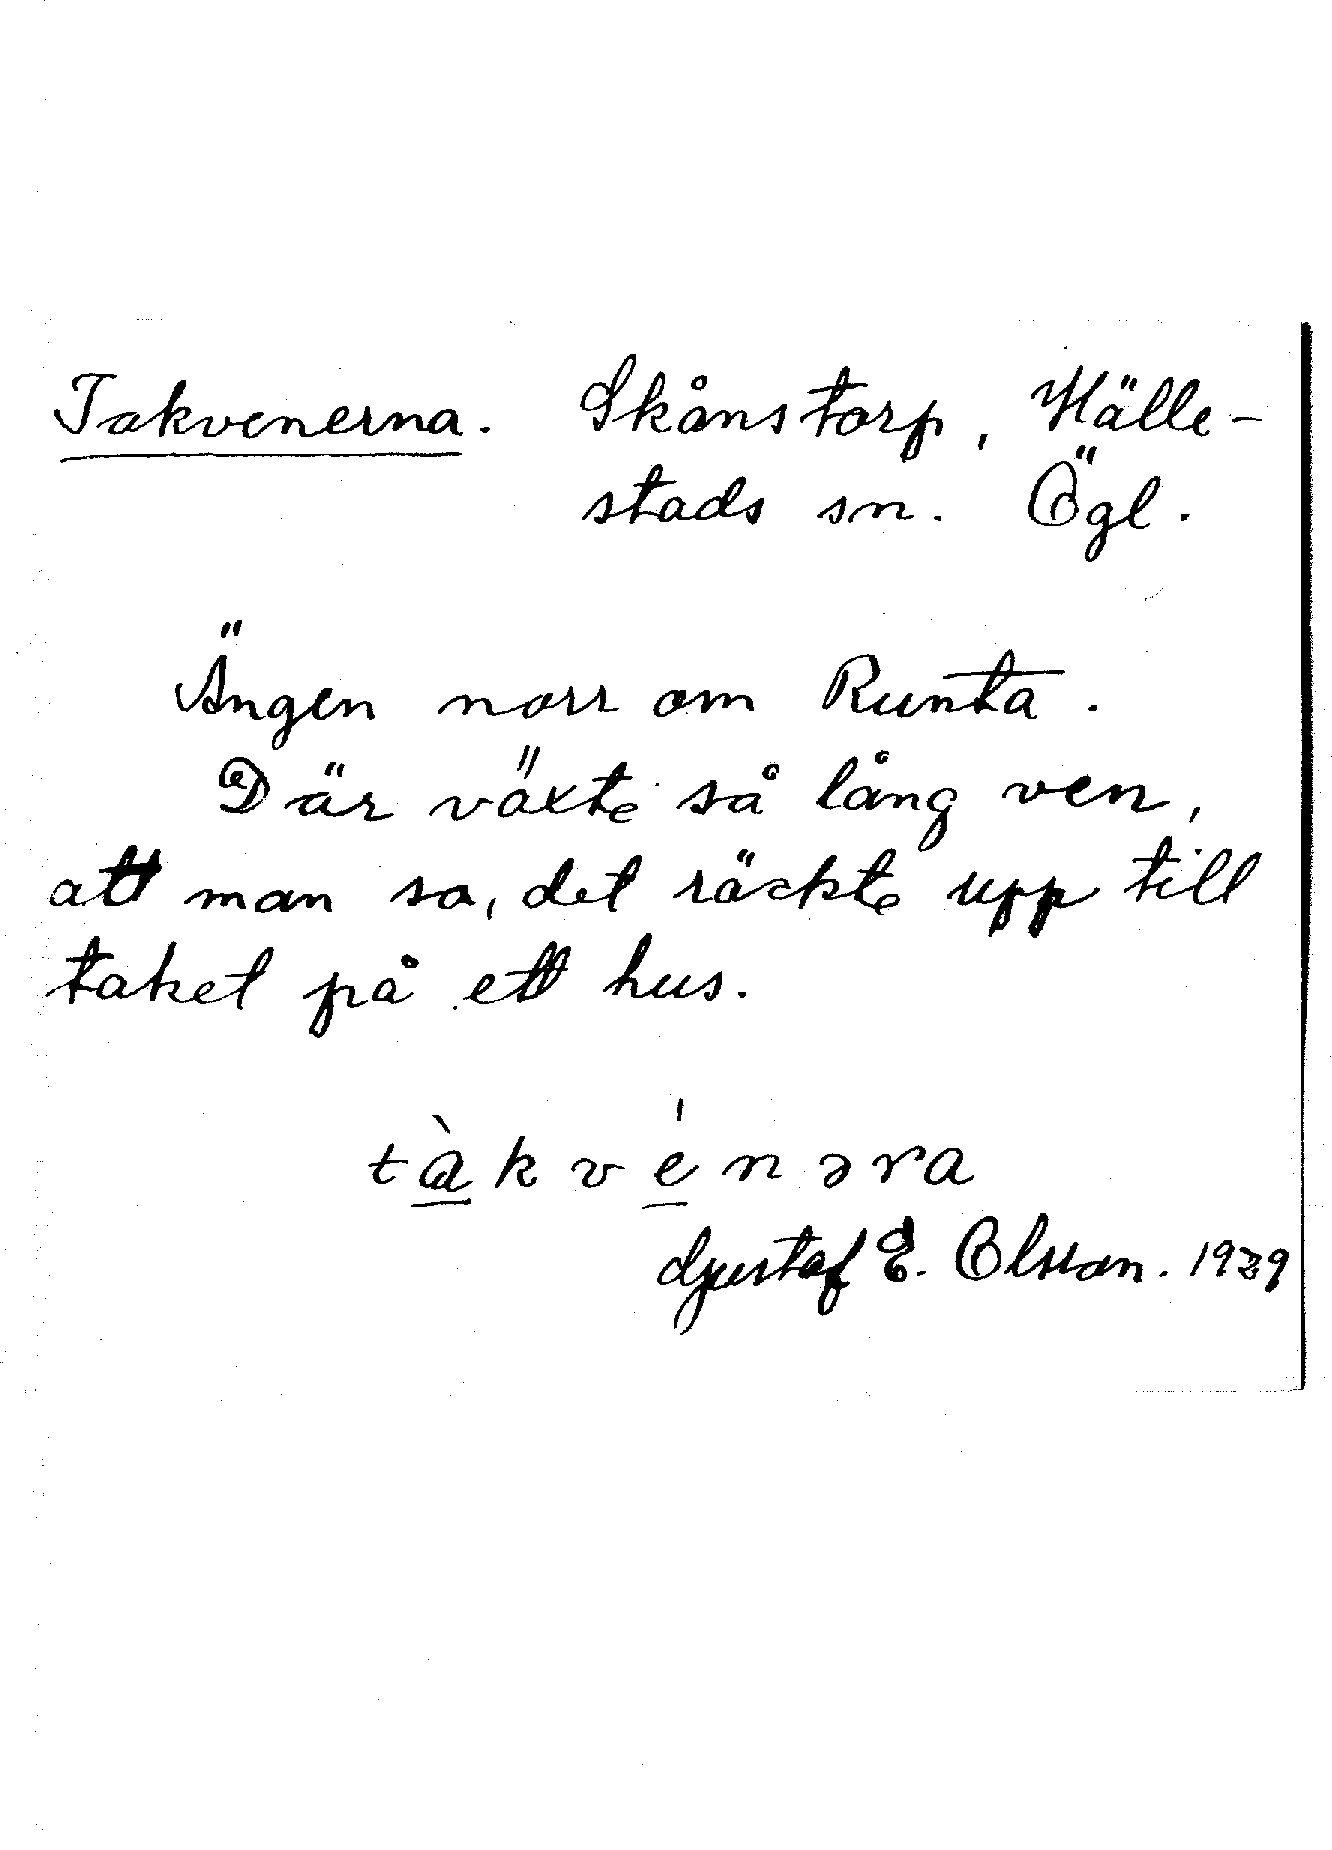 Takvenerna. Skånstorp, Hälle-
stads sn. Ögl.
Ängen norr om Runta.
Där växte så lång ven,
att man sa, det räckte upp till
taket på ett hus.
tàkvénəra
Gustaf E. Olsson. 1929